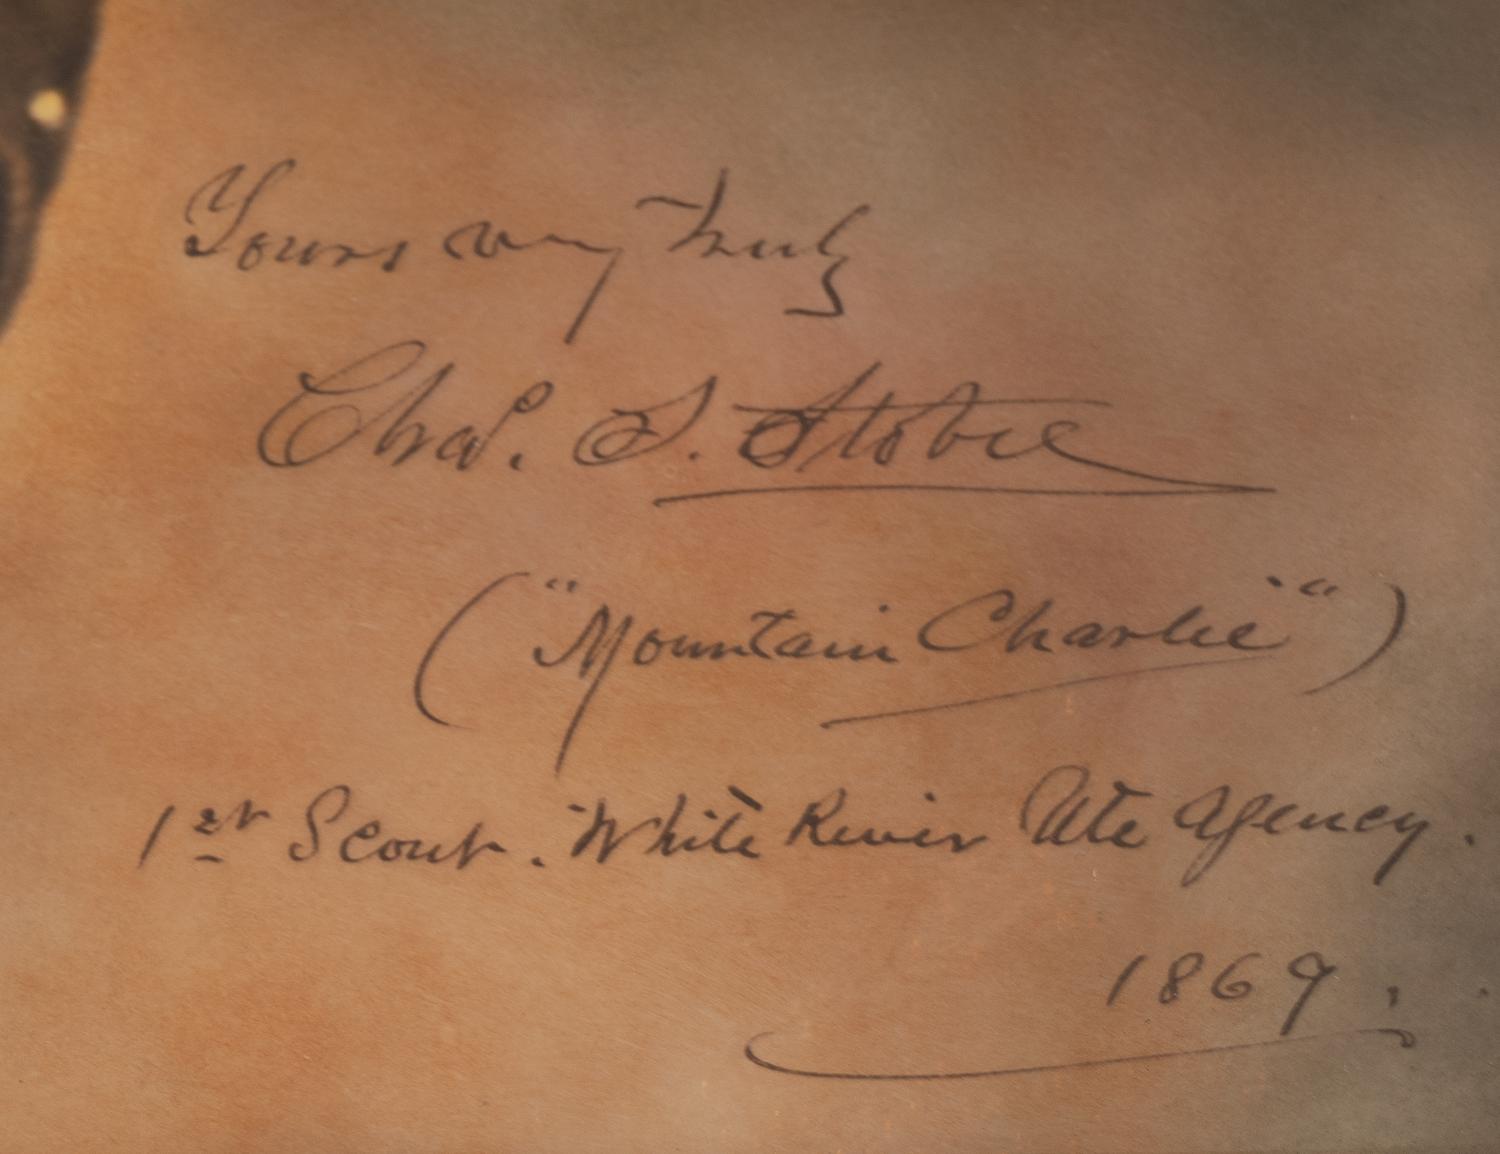 Yours very truly
Chas. S. Stobie
("Mountain Charlie")
1st Scout. White River Ute Agency.
1869.